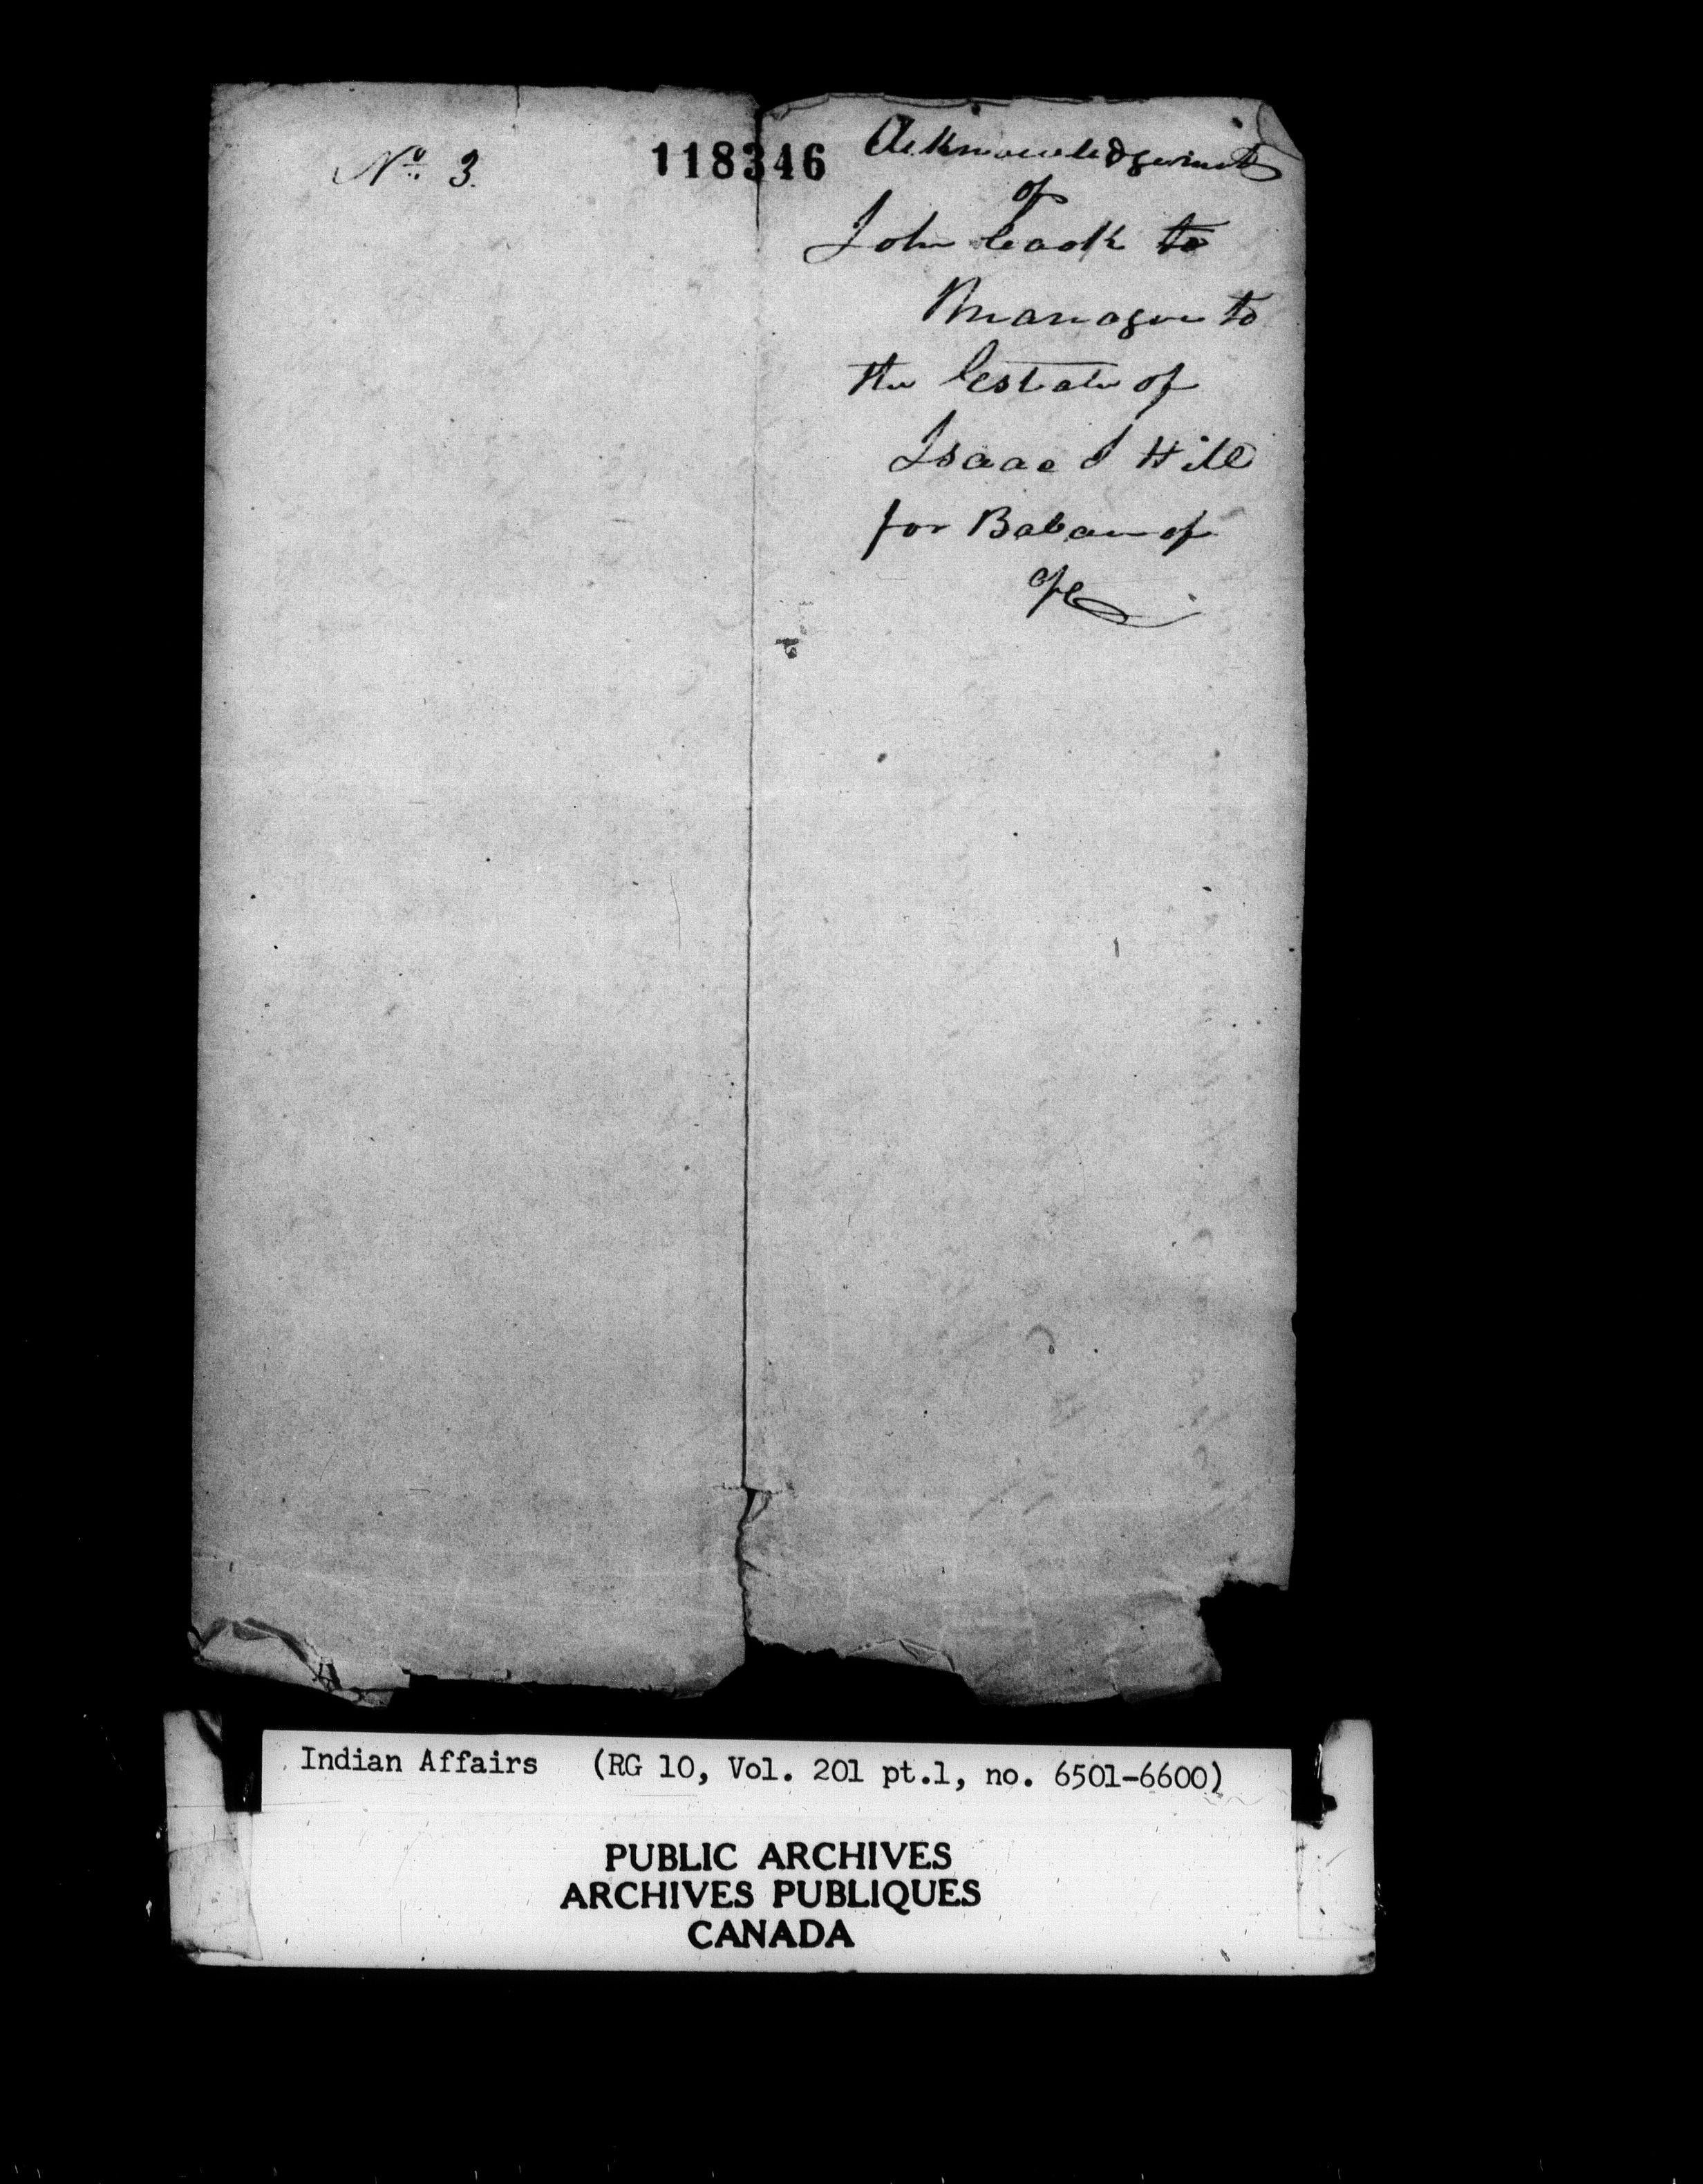 No. 3.
118346
Acknowledgement
of
John Cook to
Manager to
the Estate of
Isaac J Hill
for Balance of
Indian Affairs (RG 10, Vol. 201 pt.1, no. 6501-6600)
PUBLIC ARCHIVES
ARCHIVES PUBLIQUES
CANADA